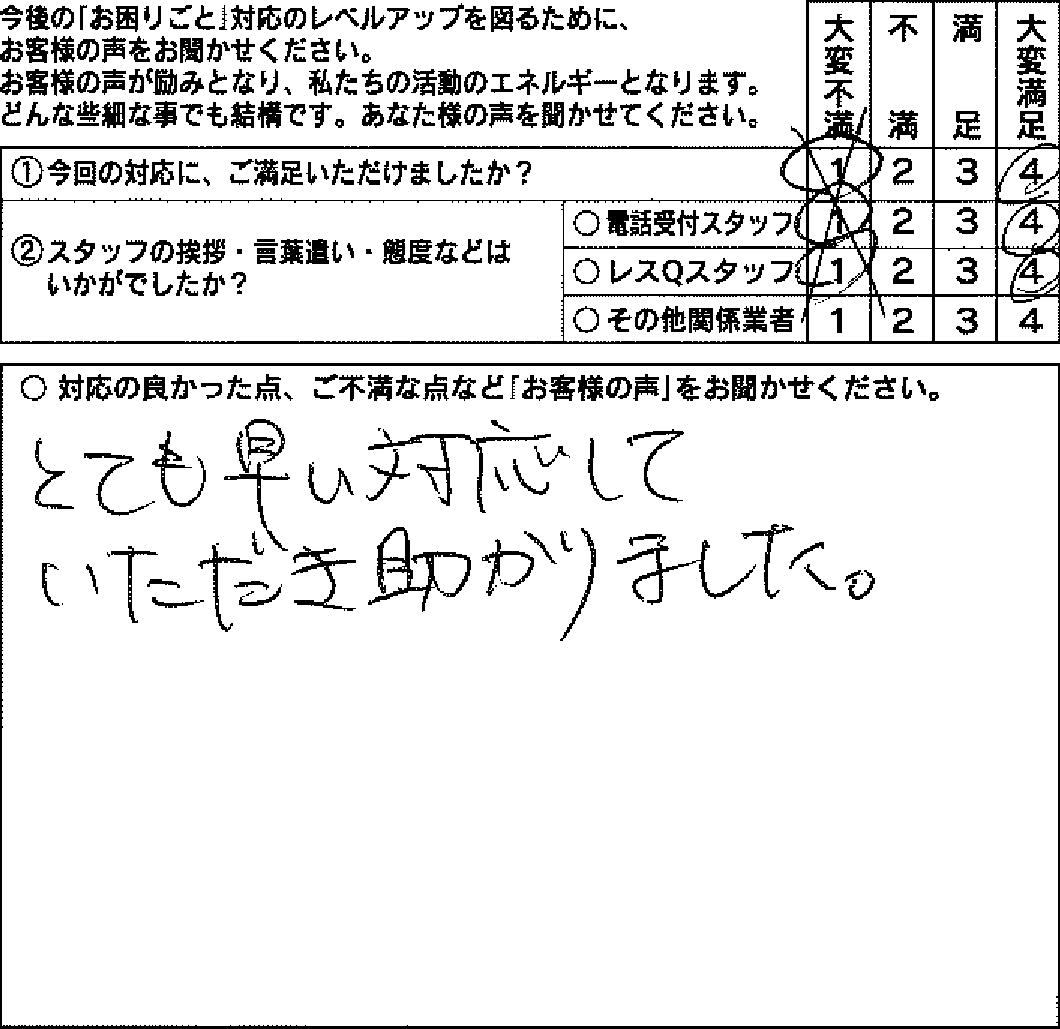 今後の「お困りごと」対応のレベルアップを図るために、
お客様の声をお聞かせください。
お客様の声が励みとなり、私たちの活動のエネルギーとなります。
どんな些細な事でも結構です。あなた様の声を聞かせてください。
大変不満 不満 満足 大変満足
①今回の対応に、ご満足いただけましたか？ 1 2 3 4
②スタッフの挨拶・言葉遣い・態度などは
いかがでしたか？
○ 電話受付スタッフ 1 2 3 4
○ レスQスタッフ 1 2 3 4
○ その他関係業者 1 2 3 4
○ 対応の良かった点、ご不満な点など「お客様の声」をお聞かせください。
とても早い対応して
いただき助かりました。